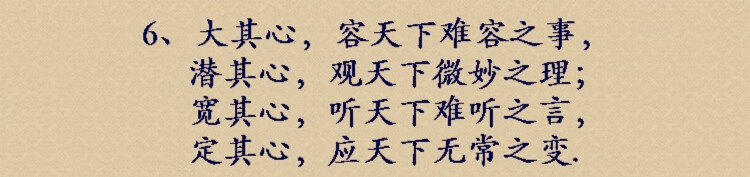 6、大其心，容天下难容之事，
潜其心，观天下微妙之理；
宽其心，听天下难听之言，
定其心，应天下无常之变.